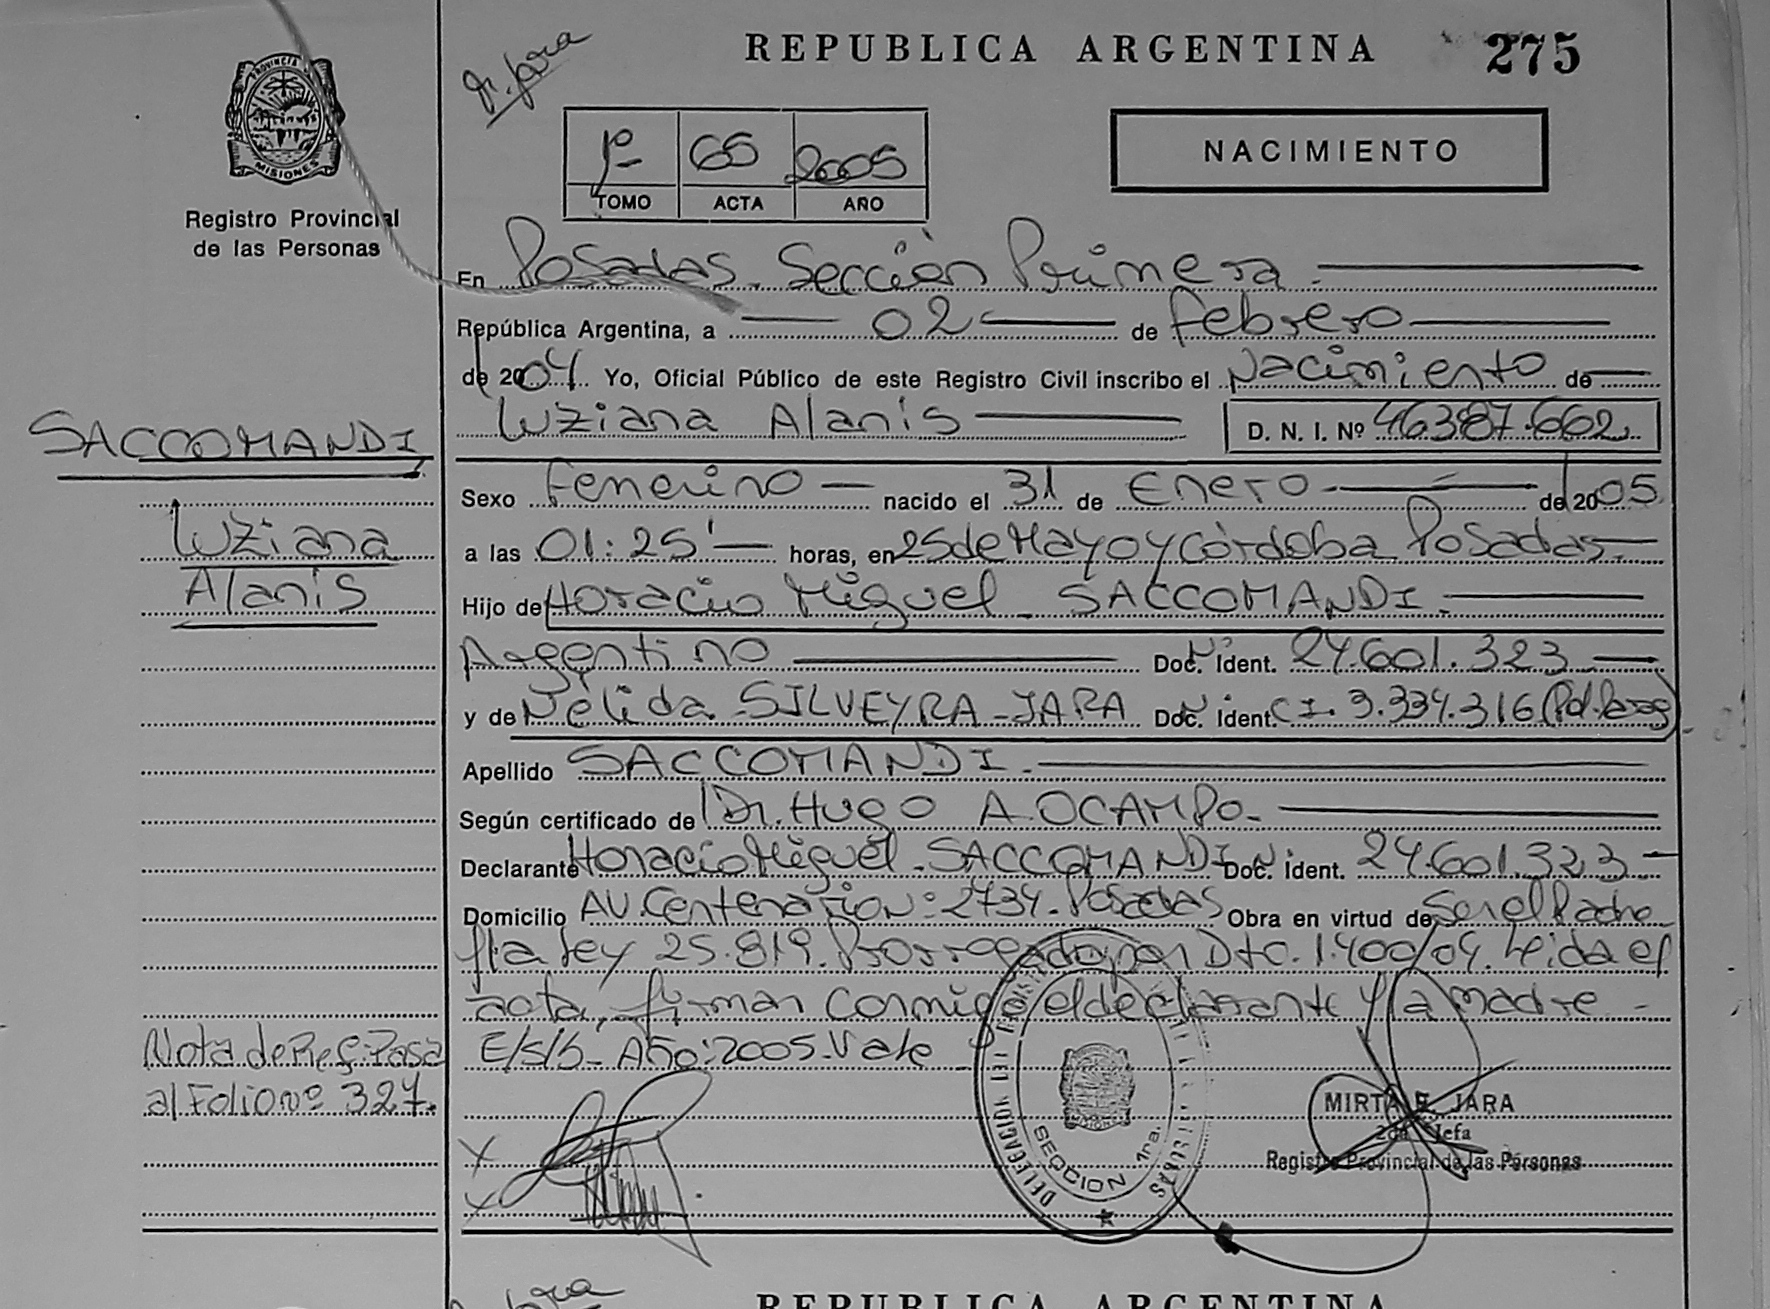 REPUBLICA ARGENTINA 275
PROVINCIA
MISIONES
Registro Provincial
de las Personas
1º 65 2005
TOMO ACTA AÑO
NACIMIENTO
En Posadas. Sección Primera.
República Argentina, a 02 de Febrero
de 2004 Yo, Oficial Público de este Registro Civil inscribo el Nacimiento de
Luziana Alanís D. N. I. Nº 46.387.662
SACCOMANDI
Luziana
Alanís
Sexo Femenino nacido el 31 de Enero de 2005
a las 01:25' horas, en 25 de Mayo y Córdoba Posadas.
Hijo de Horacio Miguel SACCOMANDI.
Argentino Doc. Ident. 24.601.323
y de Nélida SILVEYRA JARA Doc. Ident. C I. 3.334.316
Apellido SACCOMANDI.
Según certificado de Dr. Hugo A. OCAMPO.
Declarante Horacio Miguel SACCOMANDI Doc. ident. 24.601.323
Domicilio AV. Centenario Nº 2734. Posadas Obra en virtud de Ser el Padre
ley 25.819. Prorrogado por Dto. 1.400/04. Leida el
acta, firman conmigo el declarante y la madre
E/S/b Año: 2005. Vale
Nota de Ref. Pasa
al Folio nº 327.
SECCION 1ra.
MISIONES
MIRTA E. JARA
2da. Jefa
Registro Provincial de las Personas
REPUBLICA ARGENTINA